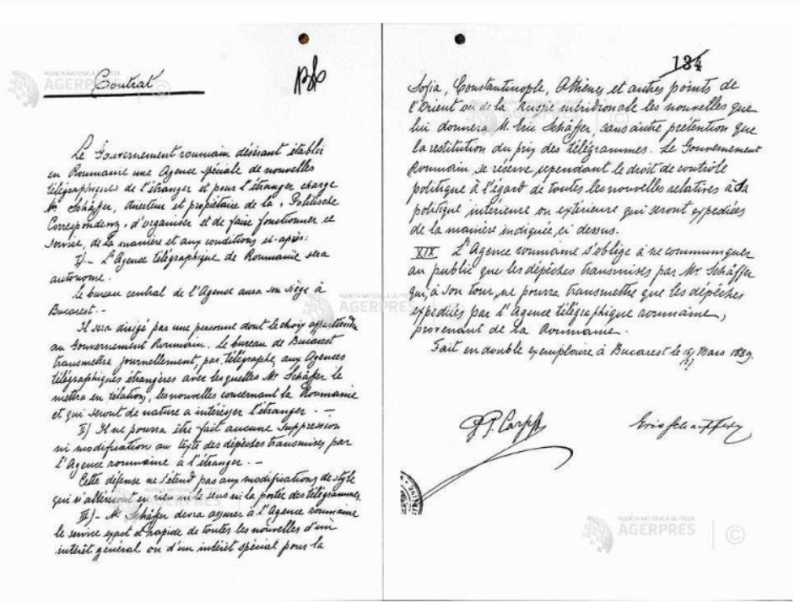 Contrat
Le Gouvernement roumain désirant établir
en Roumanie une Agence spéciale de nouvelles
télégraphiques de l'étranger et pour l'étranger charge
Mr Schäffer, directeur et propriétaire de la "Politische
Correspondenz" d'organiser et de faire fonctionner ce
service, de la manière et aux conditions ci-après:
I)- L'Agence télégraphique de Roumanie sera
autonome.
Le bureau central de l'Agence aura son siège à
Bucarest.-
Il sera dirigé par une personne dont le choix appartiendra
au Gouvernement Roumain. Le bureau de Bucarest
transmettra journellement, par télégraphe, aux Agences
télégraphiques étrangères avec lesquelles Mr Schäffer le
mettra en relation, les nouvelles concernant la Roumanie
et qui seront de nature a intéresser l'étranger.-
II) Il ne pourra être fait aucune suppression
ni modification au texte des dépêches transmises par
l'Agence roumaine à l'étranger.-
Cette défense ne s'étend pas aux modifications de style
qui n'altéreront en rien ni le sens ni la portée des télégrammes
III)- Mr Schäffer devra assurer à l'Agence roumaine
le service exact et rapide de toutes les nouvelles d'un
intérêt général ou d'un intérêt spécial pour la
134
Sofia, Constantinople, Athènes et autres points de
l'Orient ou de la Russie méridionale les nouvelles que
lui donnera Mr Eric Schäffer, sans autre prétention que
la restitution du prix des télégrammes. Le Gouvernement
Roumain se réserve cependant le droit de contrôle
politique à l'égard de toutes les nouvelles relatives à sa
politique intérieure ou extérieure qui seront expédiées
de la manière indiquée ci dessus.
XIX. L'Agence roumaine s'oblige à ne communiquer
au public que les dépêches transmises par Mr Schäffer
qui, à son tour, ne pourra transmettre que les dépêches
expédiées par l'Agence télégraphique roumaine,
provenant de la Roumanie.
Fait en double exemplaire à Bucarest le Mars 1889.
P. P. Carp
AGERPRES
AGERPRES
AGERPRES